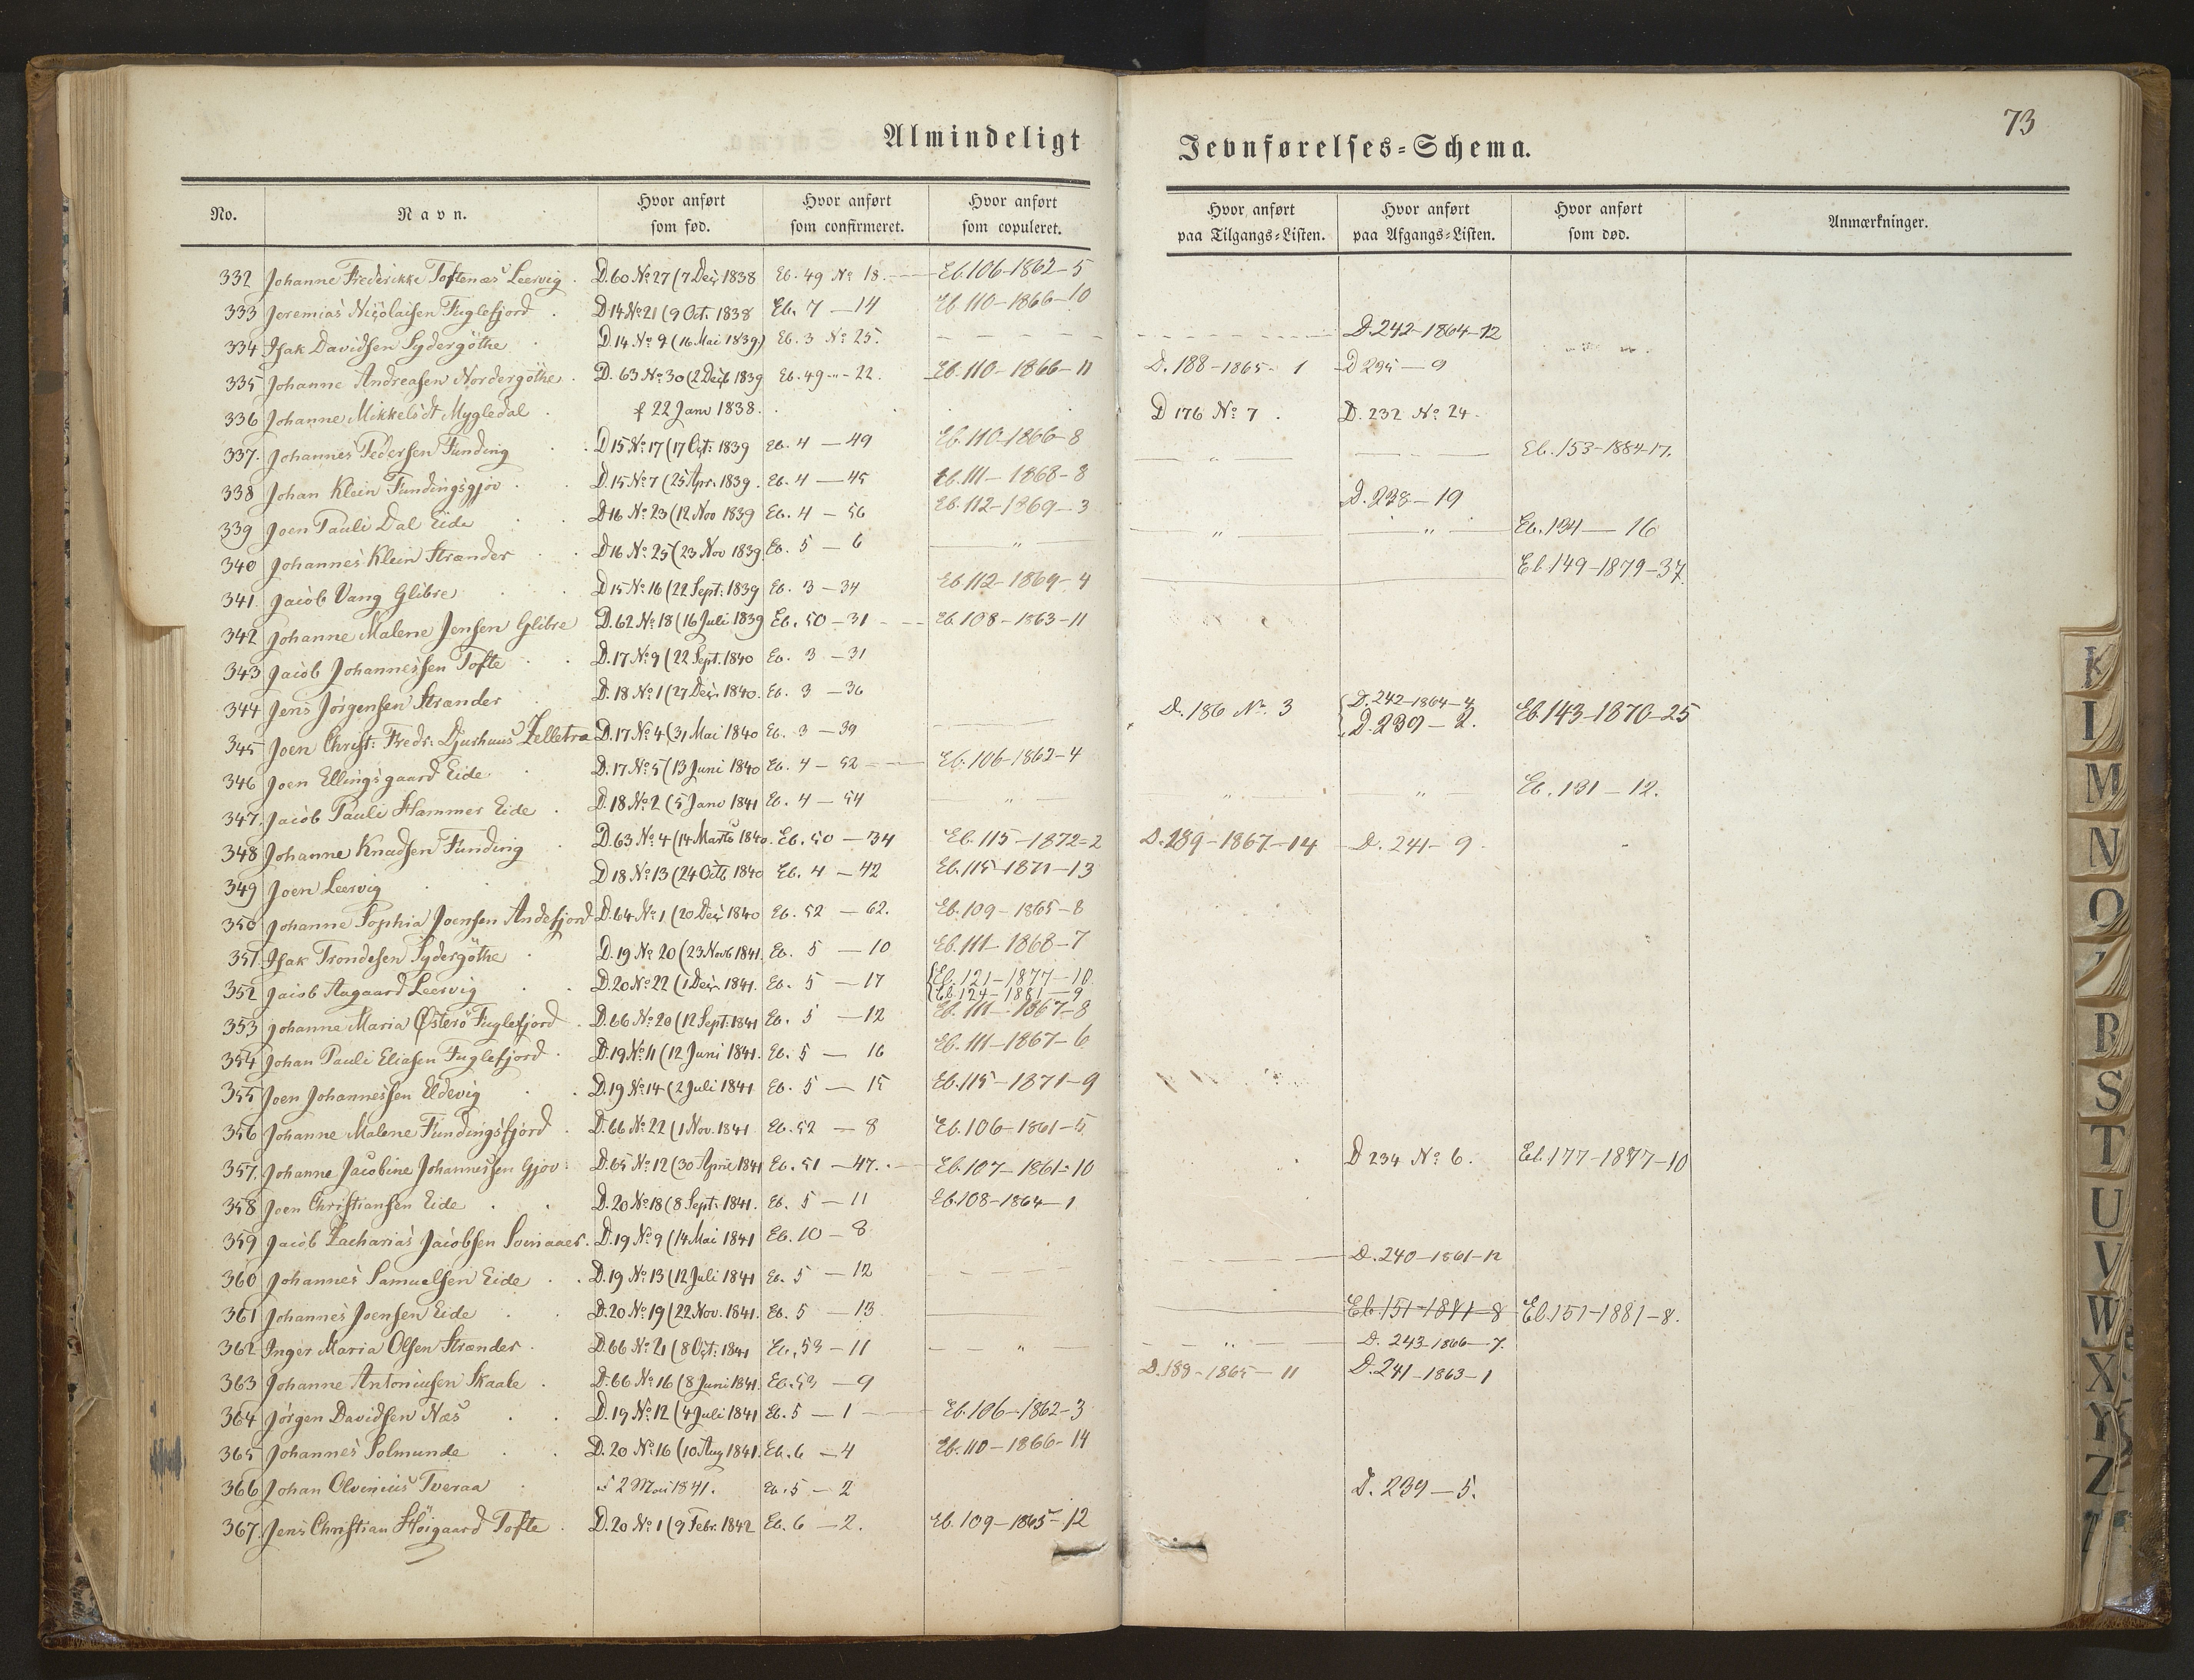 Almindeligt
Jevnførelses=Schema.
73
No. Navn. Hvor anført som fød. Hvor anført som confirmeret. Hvor anført som copuleret. Hvor anført paa Tilgangs=Listen. Hvor anført paa Afgangs=Listen. Hvor anført som død. Anmærkninger.
332 Johanne Frederikke Toftenæs Leervig D.60 No 27 (7 Dec 1838 Eb. 49 No 18. Eb.106-1862-5
333 Jeremias Nicolaisen Fuglefjord D14 No 21 (9 Oct. 1838 Eb. 7 — 14 Eb.110-1866-10
334 Isak Davidsen Sydergöthe D14 No 9 (16 Mai 1839) Eb. 3 No 25. D.242-1864-12
335 Johanne Andreasen Nordergöthe D. 63 No 30 (2 Decb 1839 Eb. 49 - 22. Eb.110-1866-11 D.188-1865-1 D235 — 9
336 Johanne Mikkelsdt Mygledal f 22 Janv 1838. D 176 No 7. D. 232 No 24.
337. Johannes Pedersen Funding D15 No 17 (17 Oct: 1839 Eb. 4 — 49 Eb.110-1866-8 — " — Eb.153-1884-17.
338 Johan Klein Fundingsgjov D.15 No 7 (25 Apr. 1839. Eb. 4 — 45 Eb.111-1868-8 D.238-19
339 Joen Pauli Dal Eide D16 No 23 (12 Nov 1839 Eb. 4 — 56 Eb.112-1869-3 — " — — " — Eb.134 — 16
340 Johannes Klein Strænder D16 No 25 (23 Nov 1839. Eb. 5 — 6 — " — Eb.149-1879-37.
341. Jacob Vang Glibre D15 No 16 (22 Sept: 1839 Eb. 3 — 34 Eb.112-1869-4
342 Johanne Malene Jensen Glibre D.62 No 18 (16 Juli 1839 Eb. 50 — 31 Eb.108-1863-11
343 Jacob Johannessen Tofte D.17 No 9 (22 Sept. 1840 Eb. 3 — 31
344 Jens Jörgensen Strænder D. 18 No 1 (27 Dec 1840. Eb. 3 — 36 D.186 No. 3 D.242-1864-4 D.239 — 2. Eb.143-1870-25
345 Joen Christ: Fredr: Djurhuus Zelletræ D.17 No 4 (31 Mai 1840 Eb. 3 — 39
346 Joen Ellingsgaard Eide D.17 No 5 (13 Juni 1840 Eb. 4 — 52 Eb.106-1862-4
347. Jacob Pauli Hammer Eide D.18 No 2 (5 Janv 1841 Eb. 4 — 54 — " — — " — — " — Eb.131 — 12.
348 Johanne Knudsen Funding D.63 No 4 (14 Marts 1840. Eb. 50 — 34 Eb.115-1872=2 D.189-1867-14 D.241-9.
349 Joen Leervig D18 No 13 (24 Octb 1840 Eb. 4 — 42 Eb.115-1871-13
350 Johanne Sophia Joensen Andefjord D.64 No 1 (20 Dec 1840 Eb. 52 — 62. Eb.109-1865-8
351. Isak Trondesen Sydergöthe D.19 No 20 (23 Novb 1841. Eb. 5 — 10 Eb.111-1868-7
352 Jacob Aagaard Leervig D.20 No 22 (1 Dec 1841. Eb. 5 — 17 Eb.121-1877-10. Eb.124-1881-9
353 Johanne Maria Østerö Fuglefjord D.66 No 20 (12 Sept: 1841 Eb. 5 — 12 Eb.111-1867-8
354 Johan Pauli Eliasen Fuglefjord D.19 No 11 (12 Juni 1841. Eb. 5 — 16 Eb.111-1867-6
355 Joen Johannessen Eldevig D.19 No 14 (2 Juli 1841 Eb. 5 — 15 Eb.115-1871-9
356 Johanne Malene Fundingsfjord D.66 No 22 (1 Nov. 1841 Eb. 52 — 8 Eb.106-1861-5
357. Johanne Jacobine Johannessen Gjov D.65 No 12 (30 April 1841 Eb. 51 — 47. Eb.107-1861-10 D 234 No 6. Eb.177-1877-10
358 Joen Christiansen Eide D.20 No 18 (8 Sept: 1841. Eb. 5 — 11 Eb.108-1864-1
359 Jacob Zacharias Jacobsen D.19 No 9 (14 Mai 1841 Eb. 10 — 8 D.240-1861-12
360 Johannes Samuelsen Eide D.19 No 13 (12 Juli 1841 Eb. 5 — 12
361 Johannes Joensen Eide D.20 No 19 (22 Nov. 1841. Eb. 5 — 13 Eb.151-1881-8 Eb.151-1881-8.
362 Inger Maria Olsen Strænder D.66 No 21 (8 Oct: 1841 Eb. 53 — 11 — " — — " — D. 243-1866-7.
363 Johanne Antoniusen Skaale D.66 No 16 (8 Juni 1841. Eb. 53 — 9 D.189-1865-11 D.241-1863-1
364 Jörgen Davidsen Næs D.19 No 12 (4 Juli 1841 Eb. 5 — 1 Eb.106-1862-3
365 Johannes Solmunde D.20 No 16 (10 Aug 1841. Eb. 6 — 4 Eb.110-1866-14
366 Johan Olvinius Tveraa 2 Mai 1841. Eb. 5 — 2 D. 239 — 5.
367. Jens Christian Höigaard Tofte D.20 No 1 (9 Febr. 1842 Eb. 6 — 2. Eb.109-1865-12
K
I
M
N
O
R
S
T
U
V
W
X
Y
Z